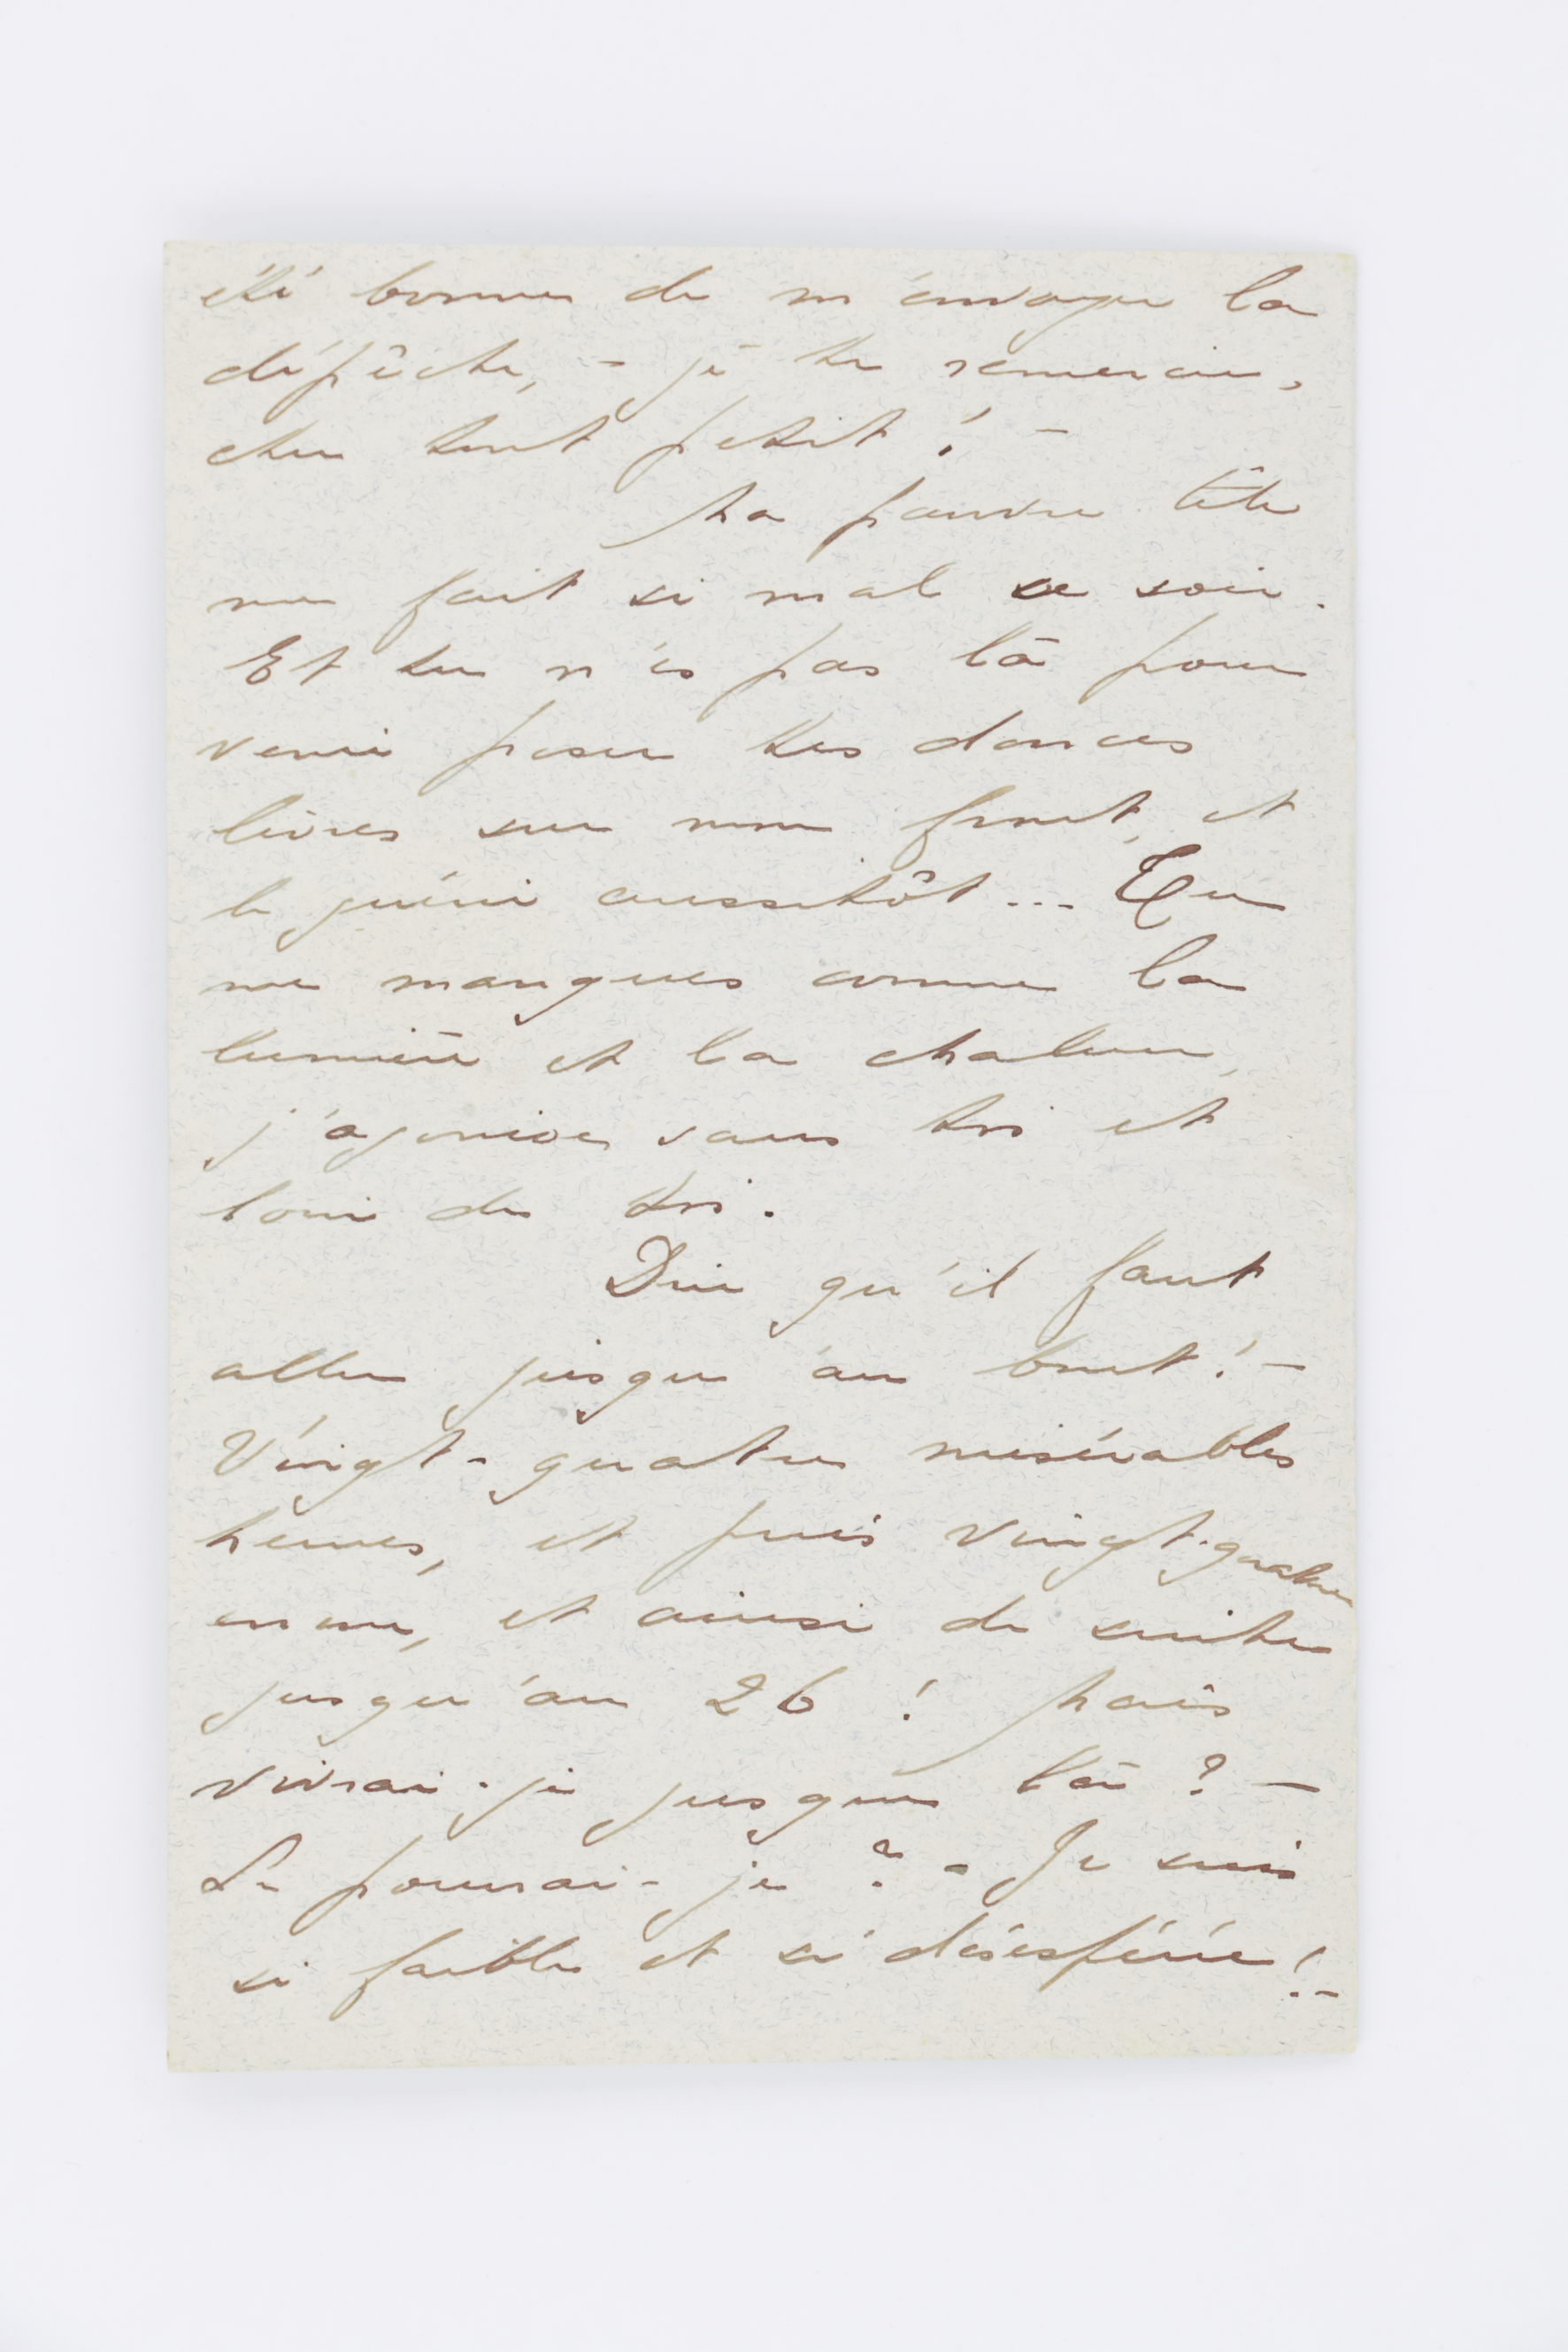 été bonne de m'envoyer la
dépêche, - je te remercie,
cher tout petit ! -
Ma pauvre tête
me fait si mal ce soir.
Et tu n'es pas là pour
venir poser tes douces
lèvres sur mon front, et
le guérir aussitôt... Tu
me manques comme la
lumière et la chaleur,
j'agonise sans toi et
loin de toi.
Dire qu'il faut
aller jusqu'au bout ! -
Vingt-quatre misérables
heures, et puis vingt-quatre
encore, et ainsi de suite
jusqu'au 26 ! Mais
vivrai-je jusque là ? -
Le pourrai-je ? - Je suis
si faible et si désespérée ! -